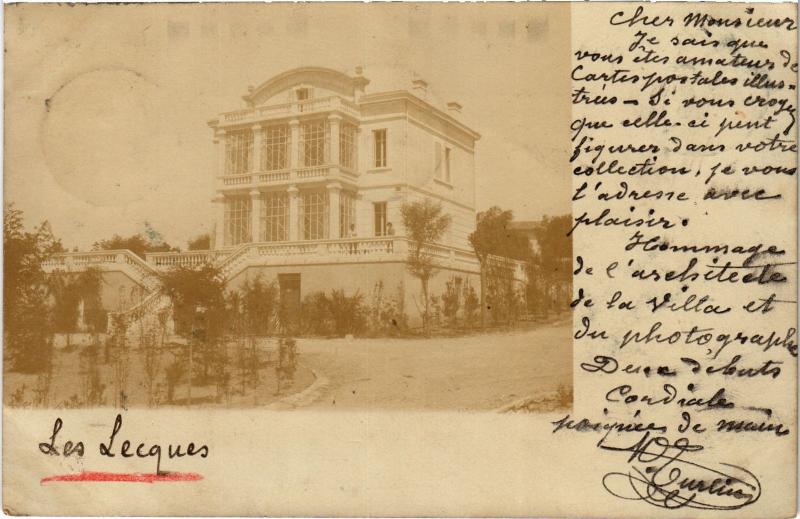 Cher Monsieur
Je sais que
vous êtes amateur de
Cartes postales illus-
trées - Si vous croyez
que celle-ci peut
figurer dans votre
collection, je vous
l'adresse avec
plaisir.
Hommage
de l'architecte
de la Villa et
du photographe
Deux débuts
Cordiale
poignée de main
Les Lecques